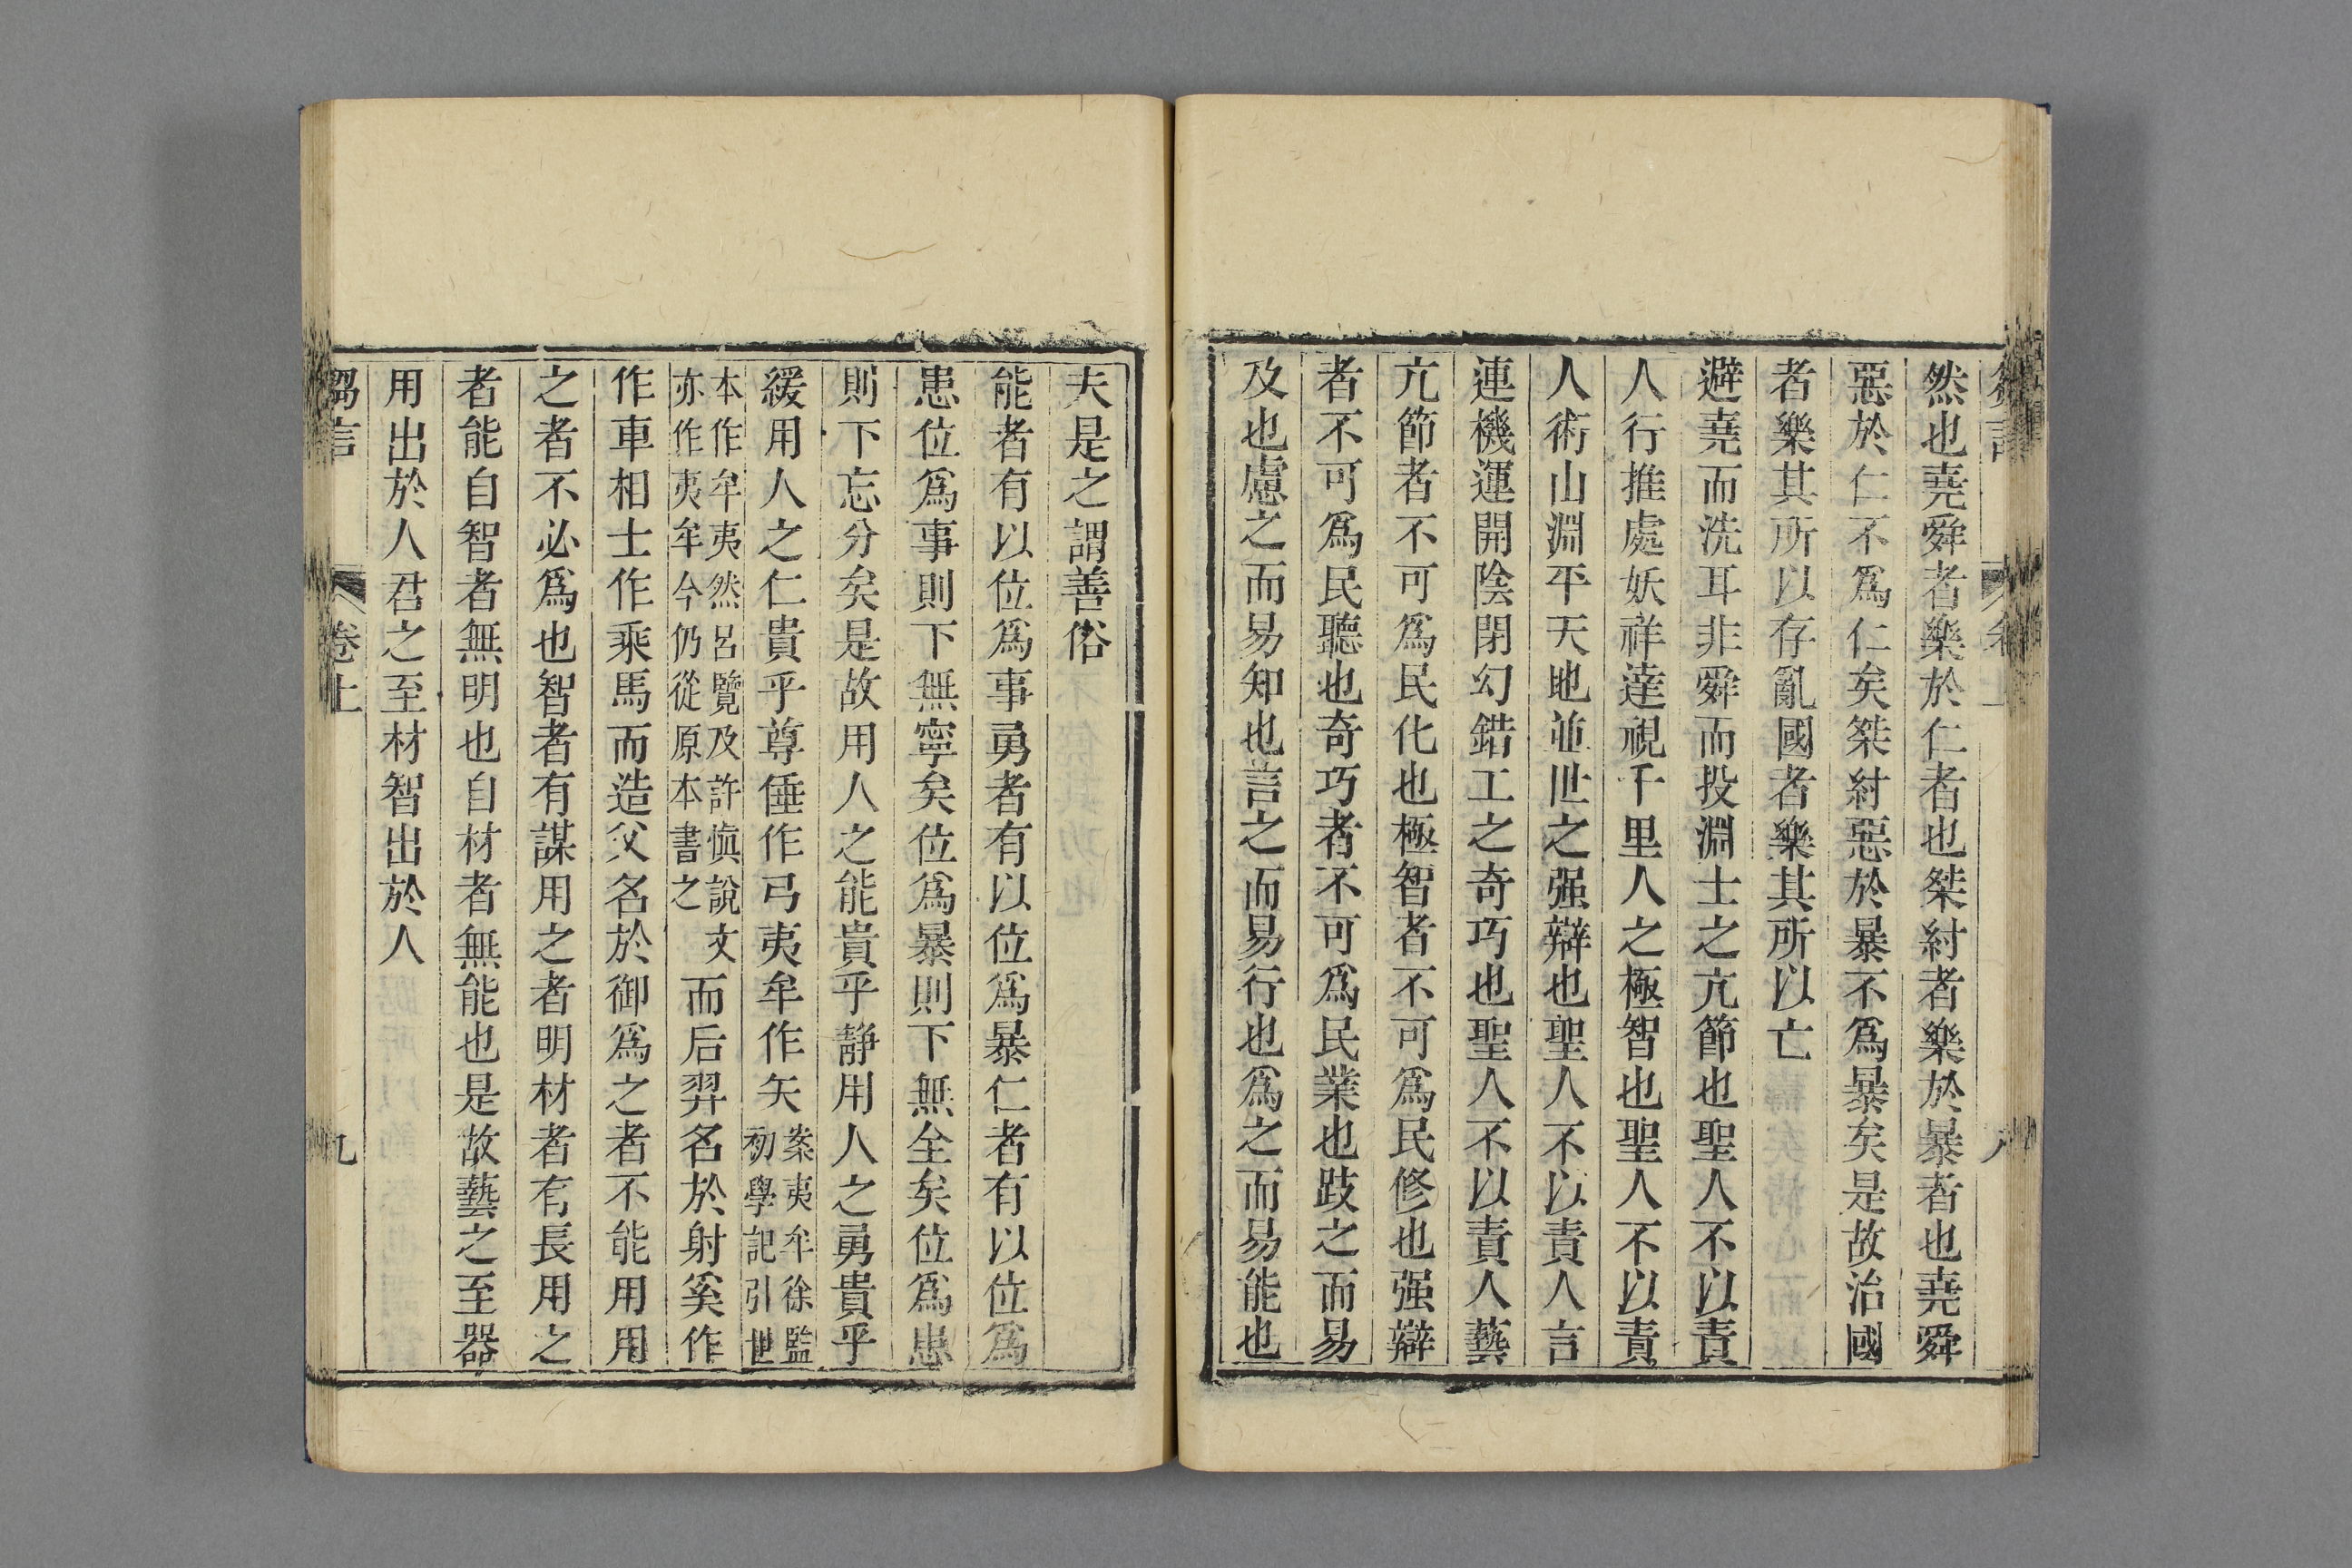 然也堯舜者樂於仁者也桀紂者樂於暴者也堯舜
惡於仁不爲仁矣桀紂惡於暴不爲暴矣是故治國
者樂其所以存亂國者樂其所以亡
避堯而洗耳非舜而投淵士之亢節也聖人不以責
人行推處妖祥達視千里人之極智也聖人不以責
人術山淵平天地並世之强辯也聖人不以責人言
連機運開陰閉幻錯工之奇巧也聖人不以責人藝
亢節者不可爲民化也極智者不可爲民修也强辯
者不可爲民聽也奇巧者不可爲民業也跂之而易
及也慮之而易知也言之而易行也爲之而易能也
夫是之謂善俗
能者有以位爲事勇者有以位爲暴仁者有以位爲
患位爲事則下無寧矣位爲暴則下無全矣位爲患
則下忘分矣是故用人之能貴乎靜用人之勇貴乎
緩用人之仁貴乎尊倕作弓夷牟作矢案夷牟徐監
初學記引世
本作牟夷然呂覽及許愼說文
亦作夷牟今仍從原本書之
而后羿名於射奚作
作車相士作乘馬而造父名於御爲之者不能用用
之者不必爲也智者有謀用之者明材者有長用之
者能自智者無明也自材者無能也是故藝之至器
用出於人君之至材智出於人
芻言 卷上 九